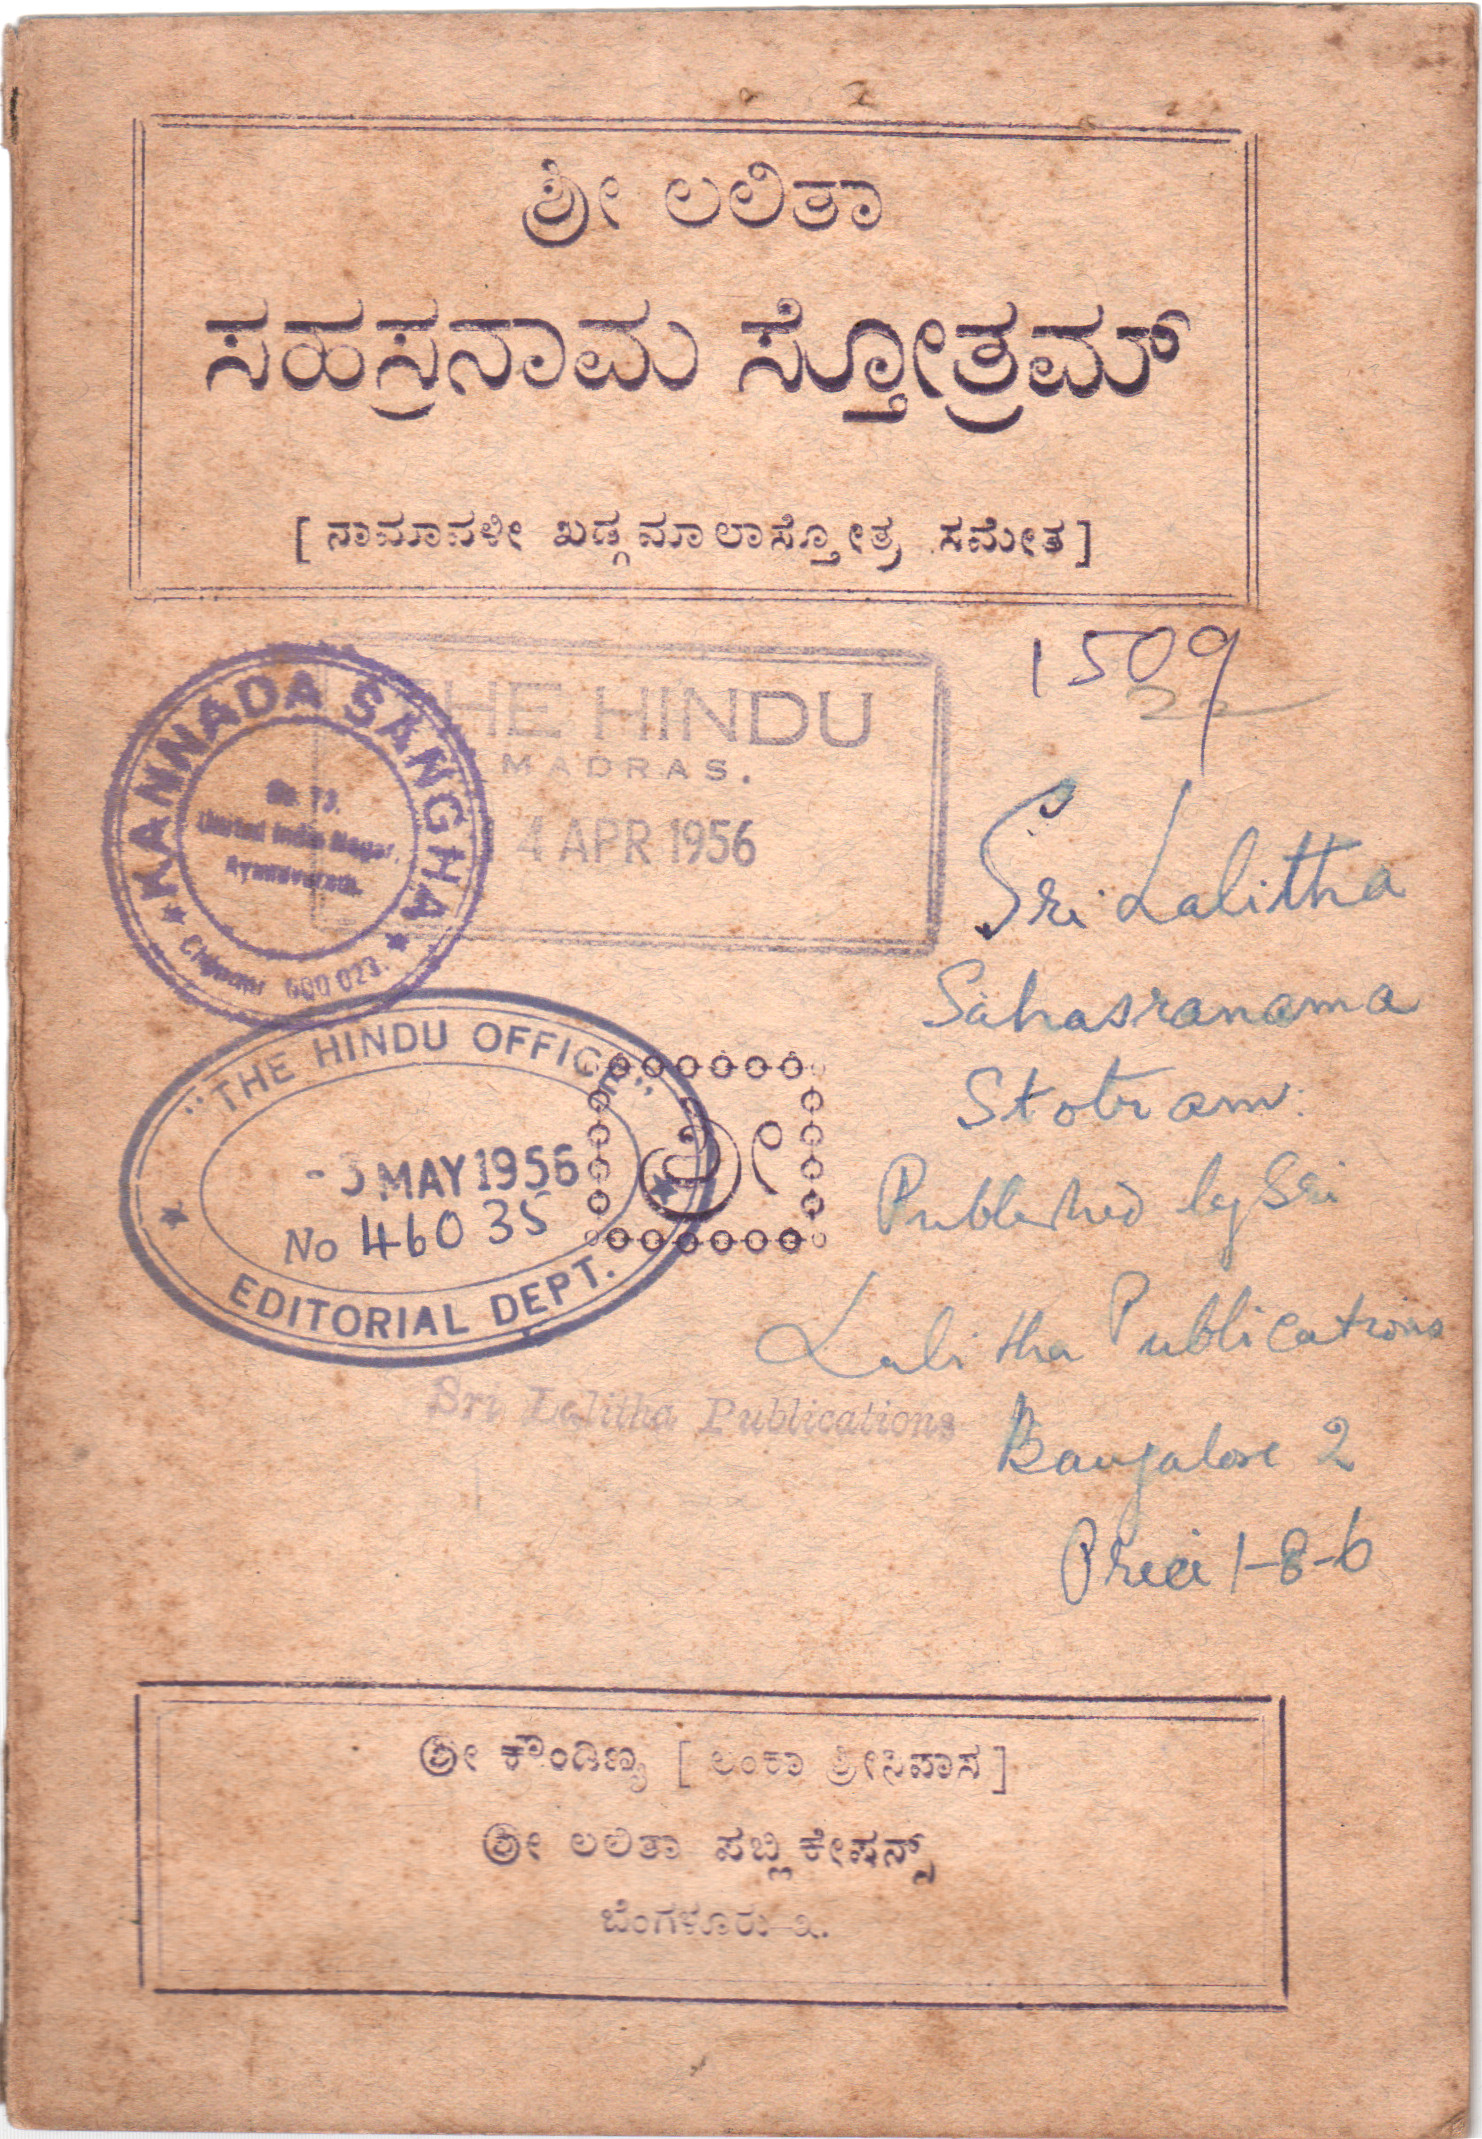 ಶ್ರೀ ಲಲಿತಾ
ಸಹಸ್ರನಾಮ ಸ್ತೋತ್ರಮ್
[ ನಾಮಾವಳೀ ಖಡ್ಗಮಾಲಾಸ್ತೋತ್ರ ಸಮೇತ ]
1509
22
KANNADA SANGHA
United India Nagar,
Ayanavaram
600 023.
THE HINDU
MADRAS.
4 APR 1956
Sri Lalitha
Sahasranama
Stotram
Published by Sri
Lalitha Publications
Bangalore 2
Price 1-8-6
"THE HINDU OFFICE"
-3 MAY 1956
No 46035
EDITORIAL DEPT.
ಶ್ರೀ
Sri Lalitha Publications
ಶ್ರೀ ಕೌಂಡಿಣ್ಯ [ ಲಂಕಾ ಶ್ರೀನಿವಾಸ ]
ಶ್ರೀ ಲಲಿತಾ ಪಬ್ಲಿಕೇಷನ್ಸ್
ಬೆಂಗಳೂರು-೨.